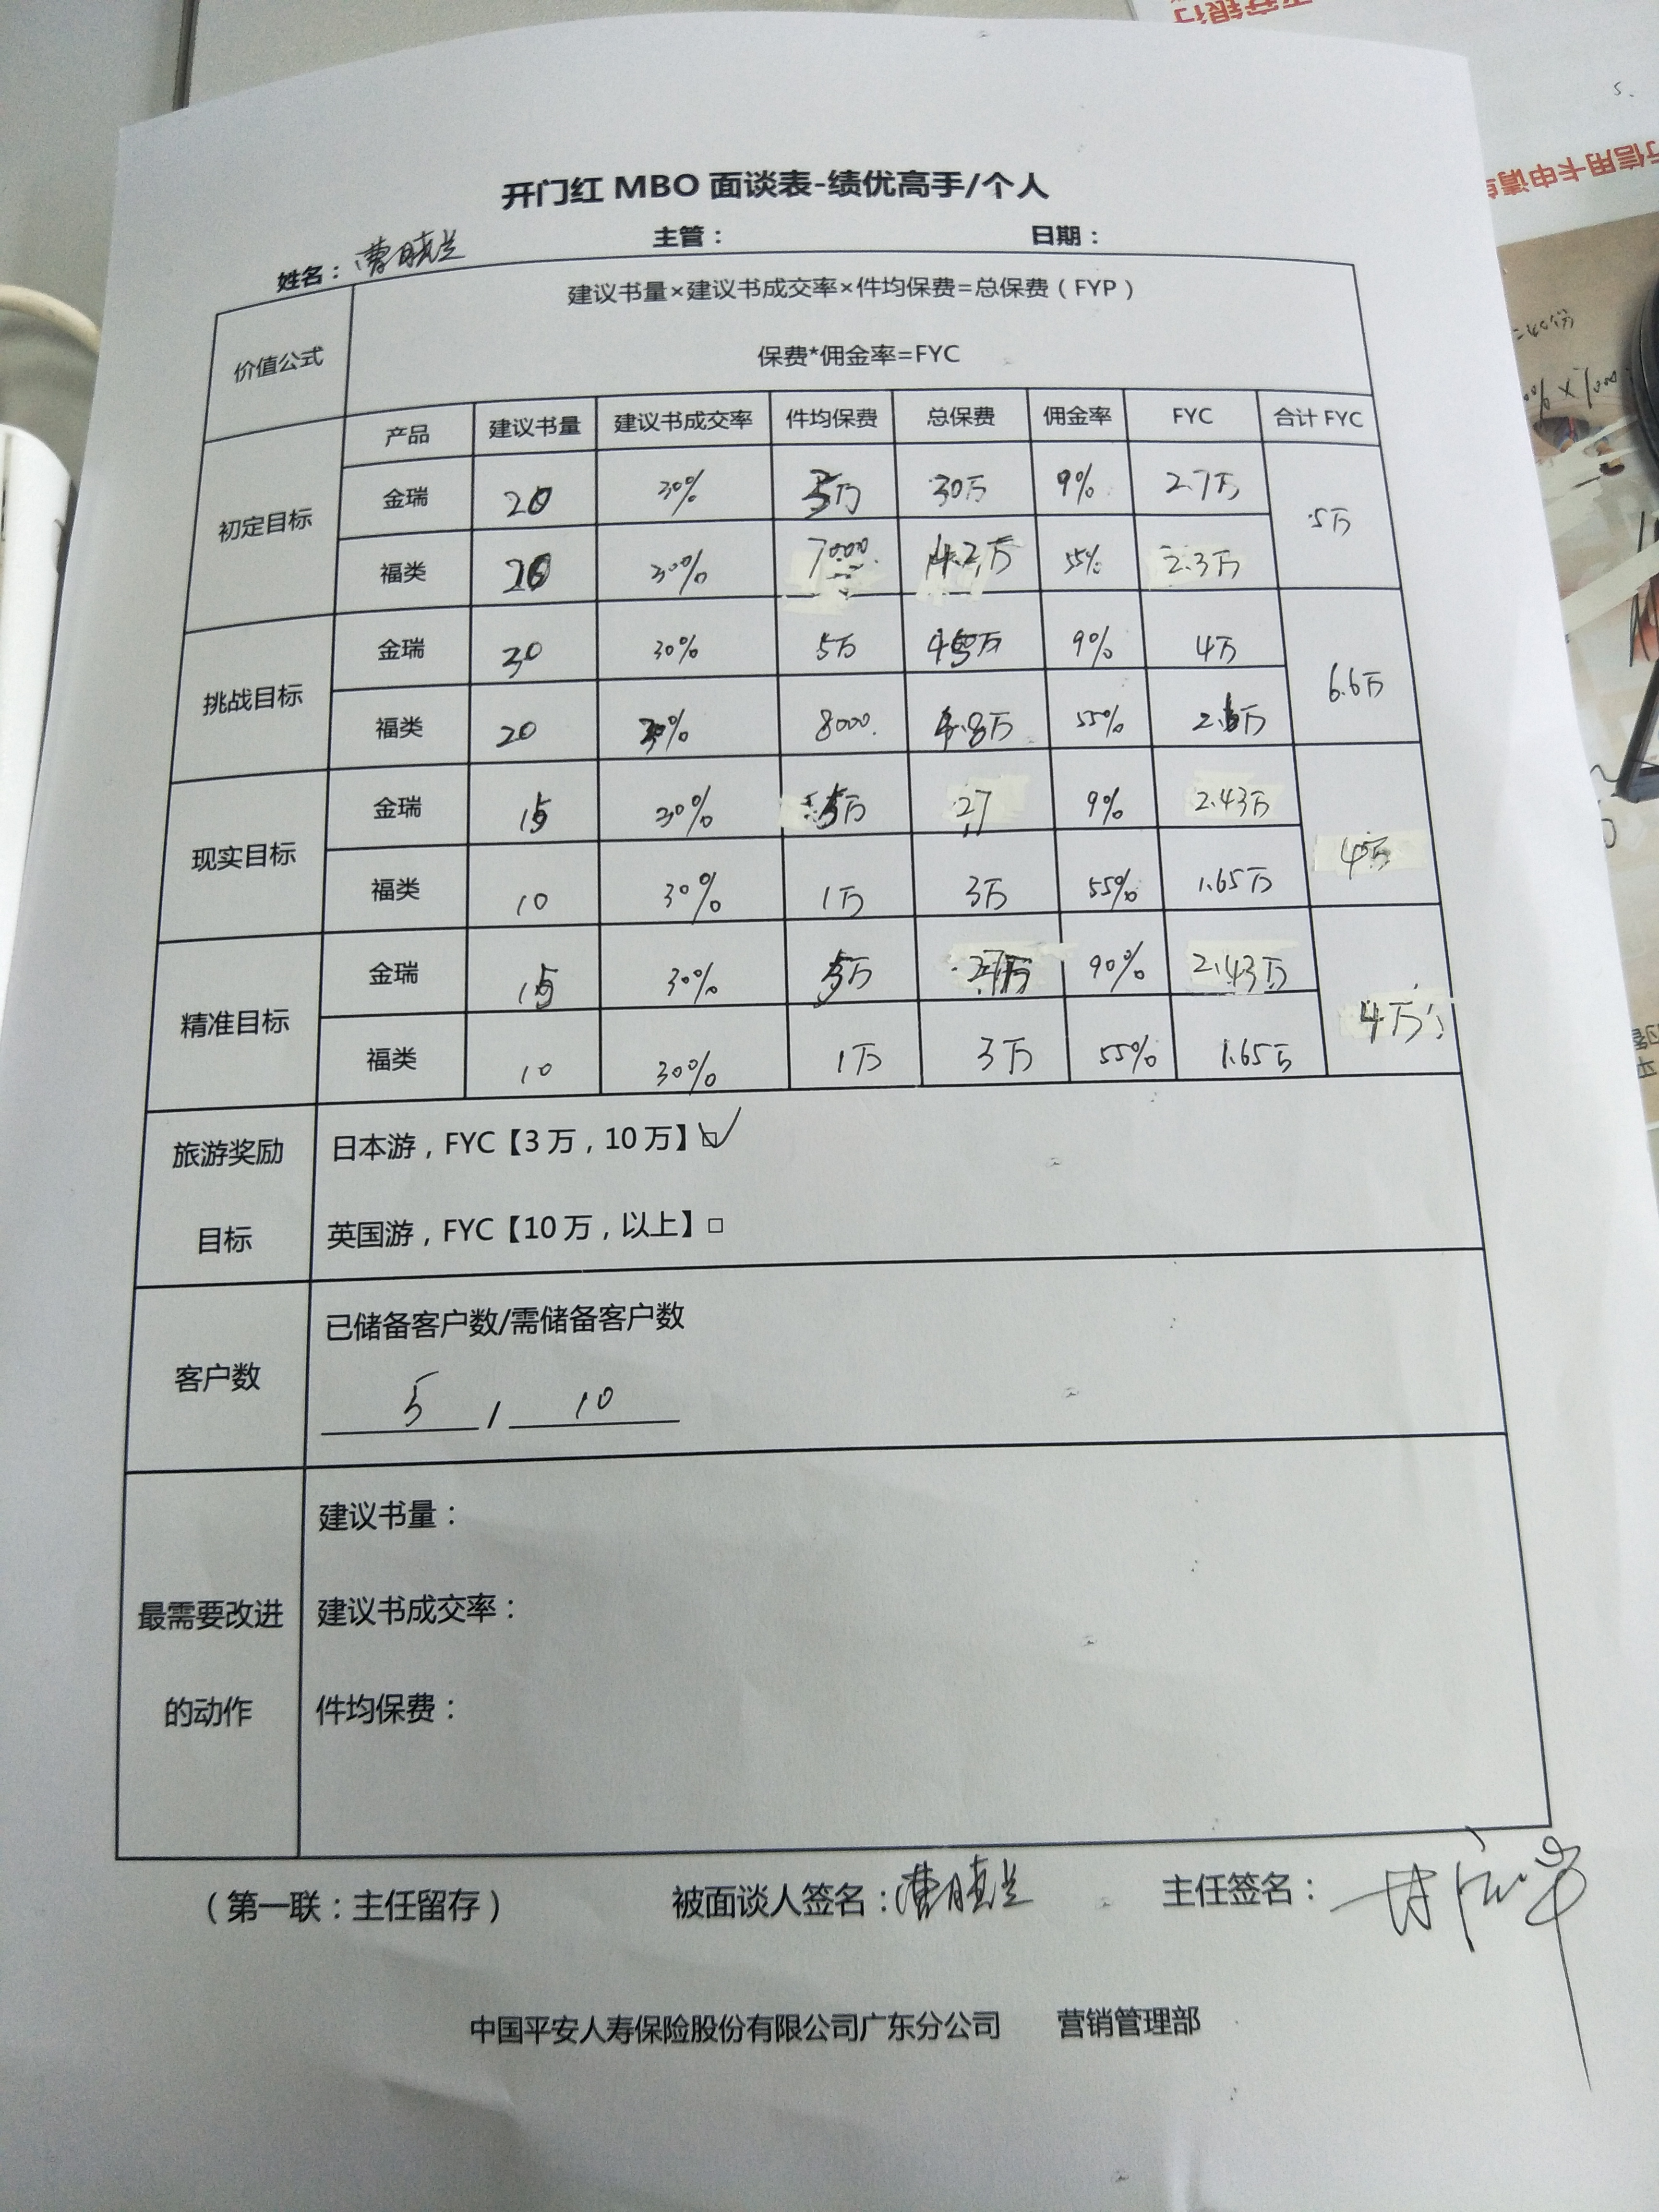 平安银行
信用卡申请
=40份
开门红 MBO 面谈表-绩优高手/个人
姓名：曹晓兰 主管： 日期：
价值公式
建议书量×建议书成交率×件均保费=总保费（FYP）
保费*佣金率=FYC
产品 建议书量 建议书成交率 件均保费 总保费 佣金率 FYC 合计 FYC
初定目标
金瑞 20 30% 5万 30万 9% 2.7万
5万
福类 20 30% 7000 4.2万 55% 2.3万
挑战目标
金瑞 30 30% 5万 45万 9% 4万
6.6万
福类 20 30% 8000 4.8万 55% 2.6万
现实目标
金瑞 15 30% 万 27 9% 2.43万
4万
福类 10 30% 1万 3万 55% 1.65万
精准目标
金瑞 15 30% 万 27万 90% 2.43万
4万
福类 10 30% 1万 3万 55% 1.65万
旅游奖励
目标
日本游，FYC【3万，10万】☑
英国游，FYC【10万，以上】□
客户数
已储备客户数/需储备客户数
5 / 10
最需要改进
的动作
建议书量：
建议书成交率：
件均保费：
（第一联：主任留存） 被面谈人签名：曹晓兰 主任签名：
中国平安人寿保险股份有限公司广东分公司 营销管理部